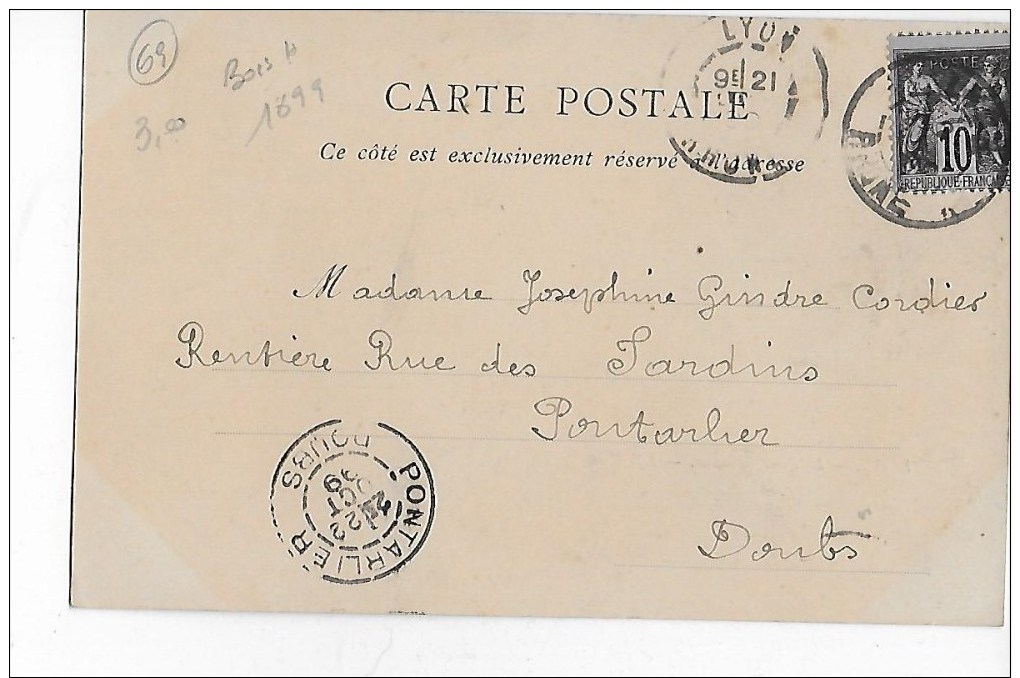 69
3,00
1899
LYON
9E/21
RHONE
POSTE
10
REPUBLIQUE FRANÇAISE
CARTE POSTALE
Ce côté est exclusivement réservé à l'adresse
Madame Josephine Gindre Cordier
Rentière Rue des Jardins
Pontarlier
Doubs
PONTARLIER
DOUBS
22
OCT